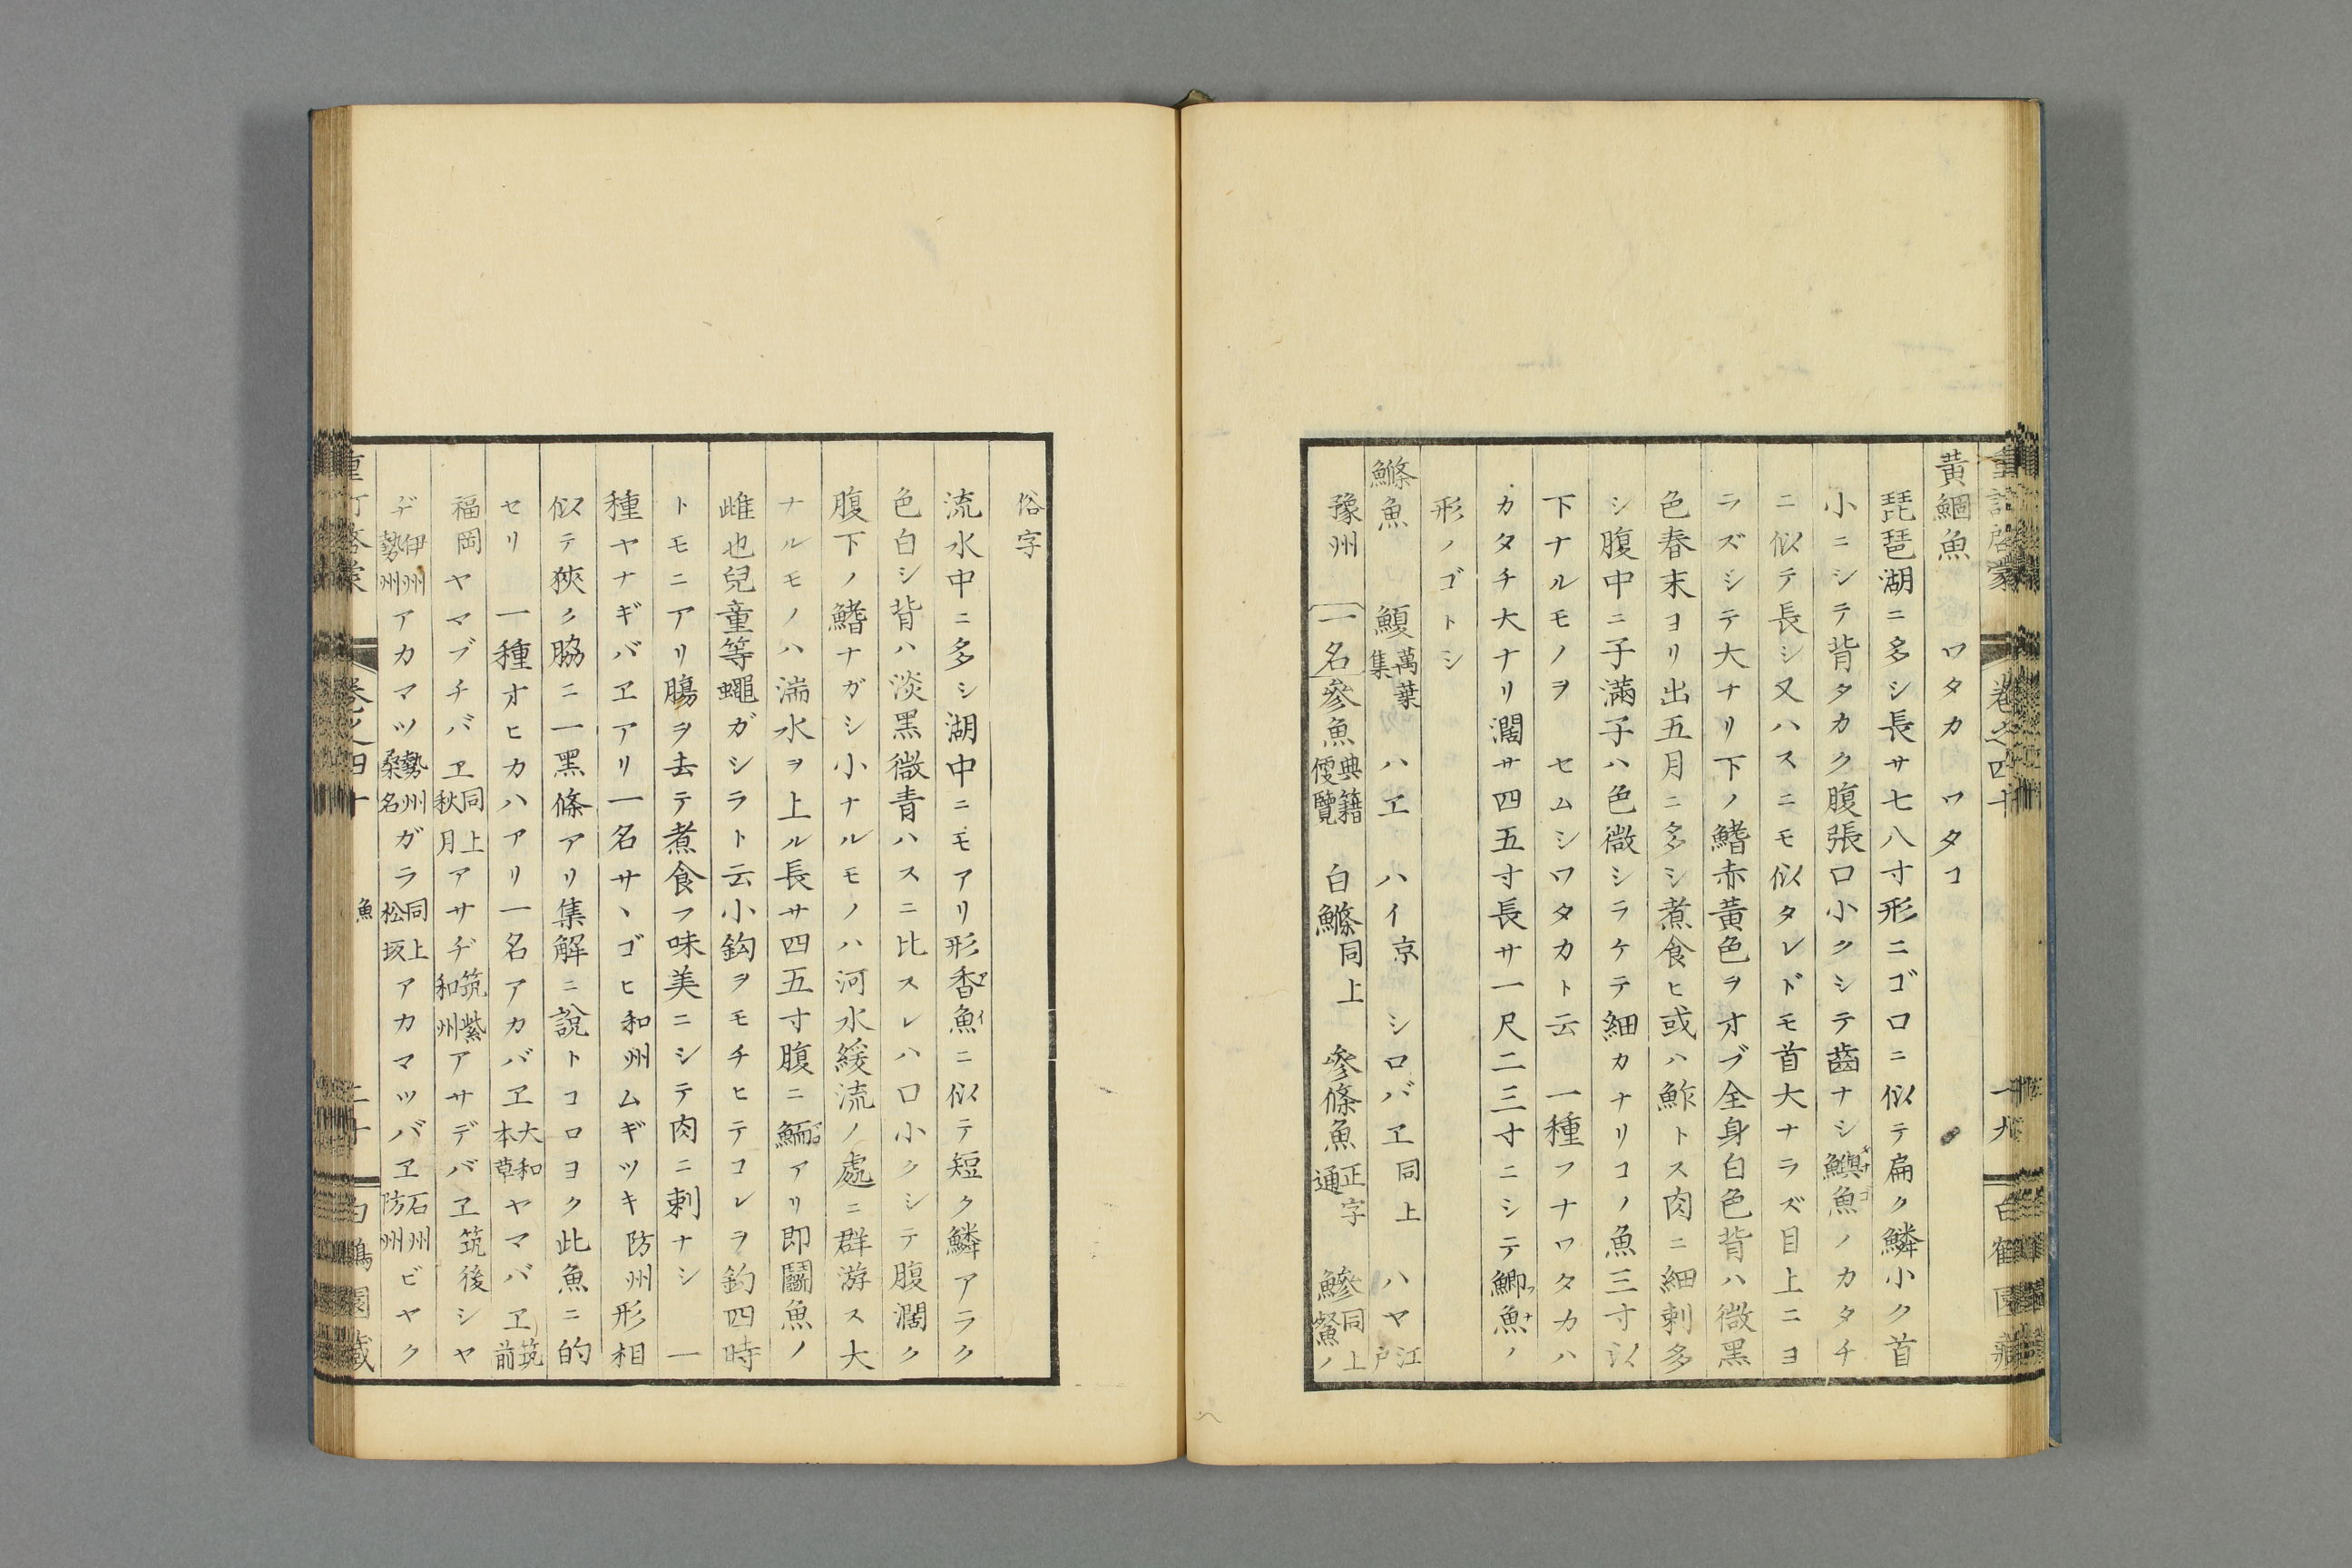 黃鯝魚　ワタカ　ワタコ
琵琶湖ニ多シ長サ七八寸形ニゴロニ似テ扁ク鱗小ク首
小ニシテ背タカク腹張口小クシテ齒ナシ鱮魚ノカタチ
ニ似テ長シ又ハスニモ似タレドモ首大ナラズ目上ニヨ
ラズシテ大ナリ下ノ鰭赤黃色ヲオブ全身白色背ハ微黑
色春末ヨリ出五月ニ多シ煮食ヒ或ハ鮓トス肉ニ細刺多
シ腹中ニ子滿子ハ色微シラケテ細カナリコノ魚三寸以
下ナルモノヲ　セムシワタカト云　一種フナワタカハ
カタチ大ナリ濶サ四五寸長サ一尺二三寸ニシテ鯽魚ノ
形ノゴトシ
鰷魚　鰒萬葉集　ハヱ　ハイ京　シロバヱ同上　ハヤ江戸
豫州　一名參魚典籍便覽　白鰷同上　參條魚正字通　鰺同上　鮝ノ
俗字
流水中ニ多シ湖中ニモアリ形香魚ニ似テ短ク鱗アラク
色白シ背ハ淡黑微青ハスニ比スレハ口小クシテ腹濶ク
腹下ノ鰭ナガシ小ナルモノハ河水緩流ノ處ニ群游ス大
ナルモノハ湍水ヲ上ル長サ四五寸腹ニ鮞アリ即鬪魚ノ
雌也兒童等蠅ガシラト云小鈎ヲモチヒテコレヲ釣四時
トモニアリ膓ヲ去テ煮食フ味美ニシテ肉ニ刺ナシ　一
種ヤナギバヱアリ一名サヽゴヒ和州ムギツキ防州形相
似テ狹ク脇ニ一黑條アリ集解ニ說トコロヨク此魚ニ的
セリ　一種オヒカハアリ一名アカバヱ大和本草ヤマバヱ筑前
福岡ヤマブチバヱ同上秋月アサヂ筑紫和州アサデバヱ筑後シヤ
ヂ伊州勢州アカマツ勢州桑名ガラ同上松坂アカマツバヱ石州防州ビヤク